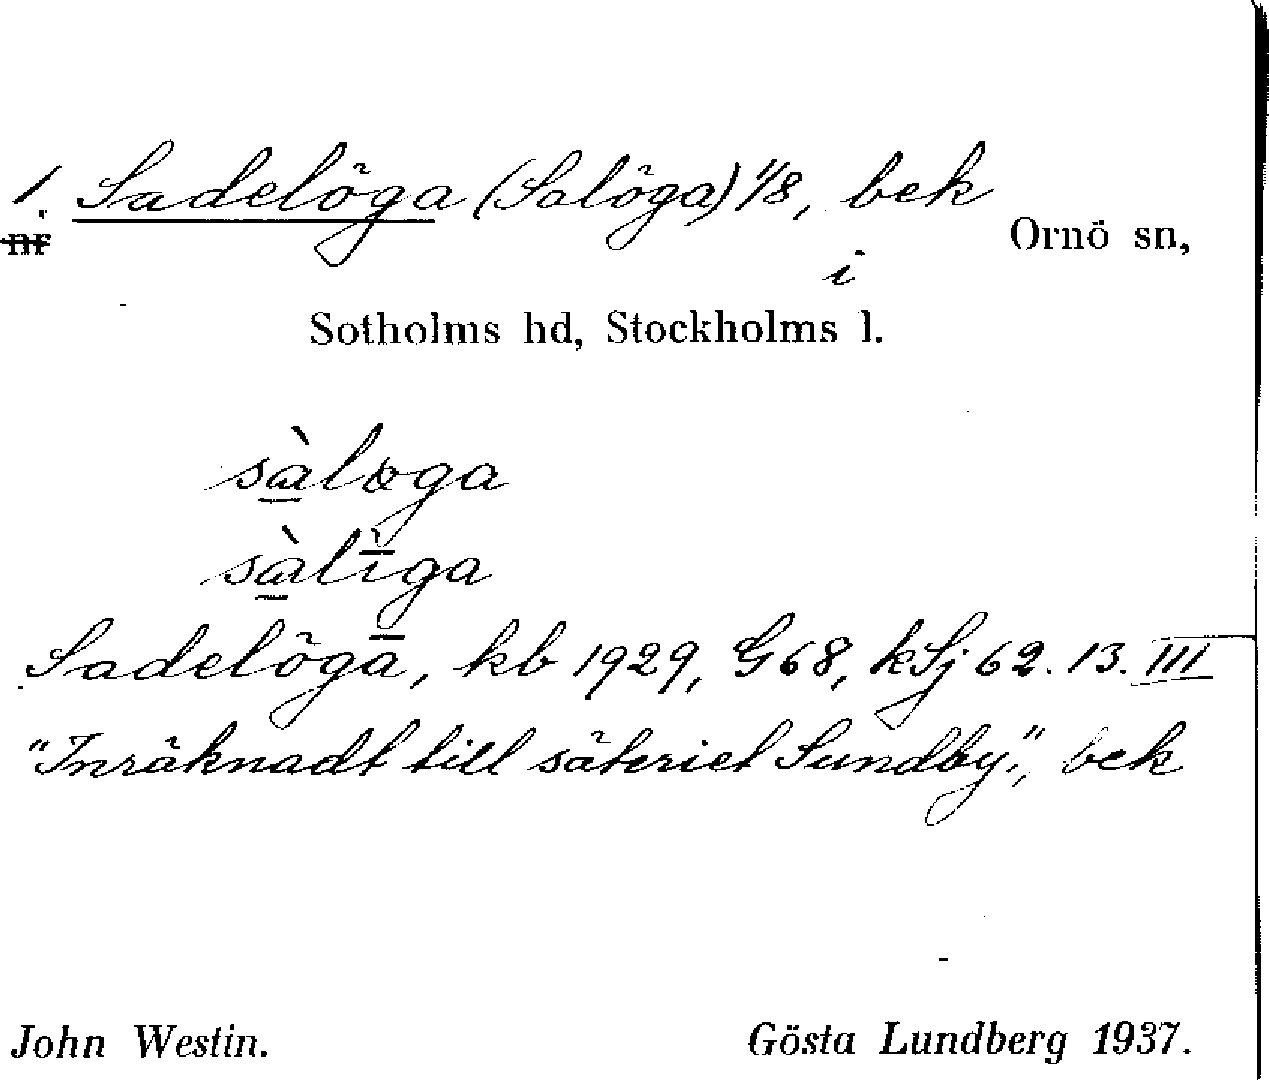 1. Sadelöga (Salöga) 1/8, bek
nr
i Ornö sn,
Sotholms hd, Stockholms l.
sàlɷga
sàlìga
Sadelöga, kb 1929, G68, kSj 62. 13. III
"Inräknadt till säteriet Sundby", bek
John Westin. Gösta Lundberg 1937.